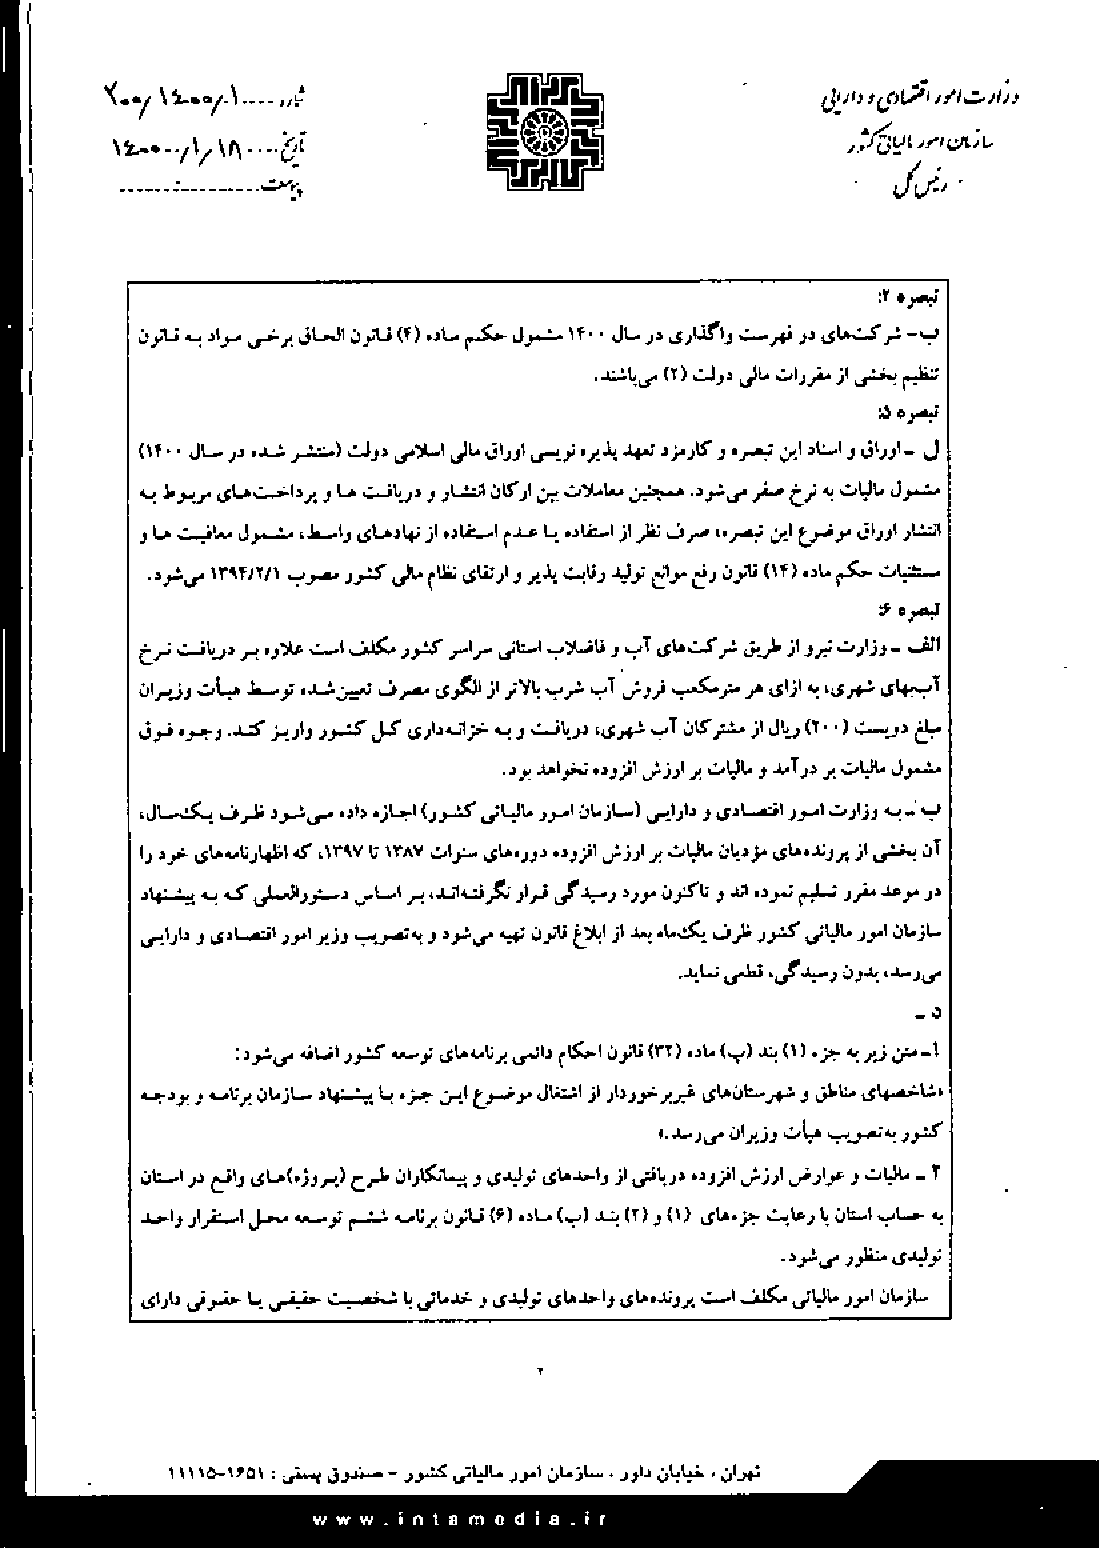 وزارت امور اقتصادی و دارایی
سازمان امور مالیاتی کشور
رئیس کل
شماره: ۲۰۰/۱۴۰۰/۱
تاریخ: ۱۴۰۰/۱/۱۸
پیوست:
تبصره ۲:
ب- شرکت‌های در فهرست واگذاری در سال ۱۴۰۰ مشمول حکم ماده (۴) قانون الحاق برخی مواد به قانون
تنظیم بخشی از مقررات مالی دولت (۲) می‌باشند.
تبصره ۵:
ل - اوراق و اسناد این تبصره و کارمزد تعهد پذیره نویسی اوراق مالی اسلامی دولت (منتشر شده در سال ۱۴۰۰)
مشمول مالیات به نرخ صفر می‌شود. همچنین معاملات بین ارکان انتشار و دریافت ها و پرداخت‌های مربوط به
انتشار اوراق موضوع این تبصره، صرف نظر از استفاده یا عدم استفاده از نهادهای واسط، مشمول معافیت ها و
مستثنیات حکم ماده (۱۴) قانون رفع موانع تولید رقابت پذیر و ارتقای نظام مالی کشور مصوب ۱۳۹۴/۲/۱ می‌شود.
تبصره ۶:
الف - وزارت نیرو از طریق شرکت‌های آب و فاضلاب استانی سراسر کشور مکلف است علاوه بر دریافت نرخ
آب‌بهای شهری، به ازای هر مترمکعب فروش آب شرب بالاتر از الگوی مصرف تعیین‌شده توسط هیأت وزیران
مبلغ دویست (۲۰۰) ریال از مشترکان آب شهری، دریافت و به خزانه‌داری کل کشور واریز کند. وجوه فوق
مشمول مالیات بر درآمد و مالیات بر ارزش افزوده نخواهد بود.
ب - به وزارت امور اقتصادی و دارایی (سازمان امور مالیاتی کشور) اجازه داده می‌شود ظرف یک‌سال،
آن بخشی از پرونده‌های مؤدیان مالیات بر ارزش افزوده دوره‌های سنوات ۱۳۸۷ تا ۱۳۹۷، که اظهارنامه‌های خود را
در موعد مقرر تسلیم نموده اند و تاکنون مورد رسیدگی قرار نگرفته‌اند، بر اساس دستورالعملی که به پیشنهاد
سازمان امور مالیاتی کشور ظرف یک‌ماه بعد از ابلاغ قانون تهیه می‌شود و به‌تصویب وزیر امور اقتصادی و دارایی
می‌رسد، بدون رسیدگی، قطعی نماید.
د -
۱- متن زیر به جزء (۱) بند (پ) ماده (۳۲) قانون احکام دائمی برنامه‌های توسعه کشور اضافه می‌شود:
«شاخصهای مناطق و شهرستان‌های غیربرخوردار از اشتغال موضوع این جزء با پیشنهاد سازمان برنامه و بودجه
کشور به‌تصویب هیأت وزیران می‌رسد.»
۲ - مالیات و عوارض ارزش افزوده دریافتی از واحدهای تولیدی و پیمانکاران طرح (پروژه)های واقع در استان
به حساب استان با رعایت جزءهای (۱) و (۲) بند (ب) ماده (۶) قانون برنامه ششم توسعه محل استقرار واحد
تولیدی منظور می‌شود.
سازمان امور مالیاتی مکلف است پرونده‌های واحدهای تولیدی و خدماتی با شخصیت حقیقی یا حقوقی دارای
۲
تهران ، خیابان داور ، سازمان امور مالیاتی کشور - صندوق پستی : ۱۶۵۱-۱۱۱۱۵
www.intamedia.ir